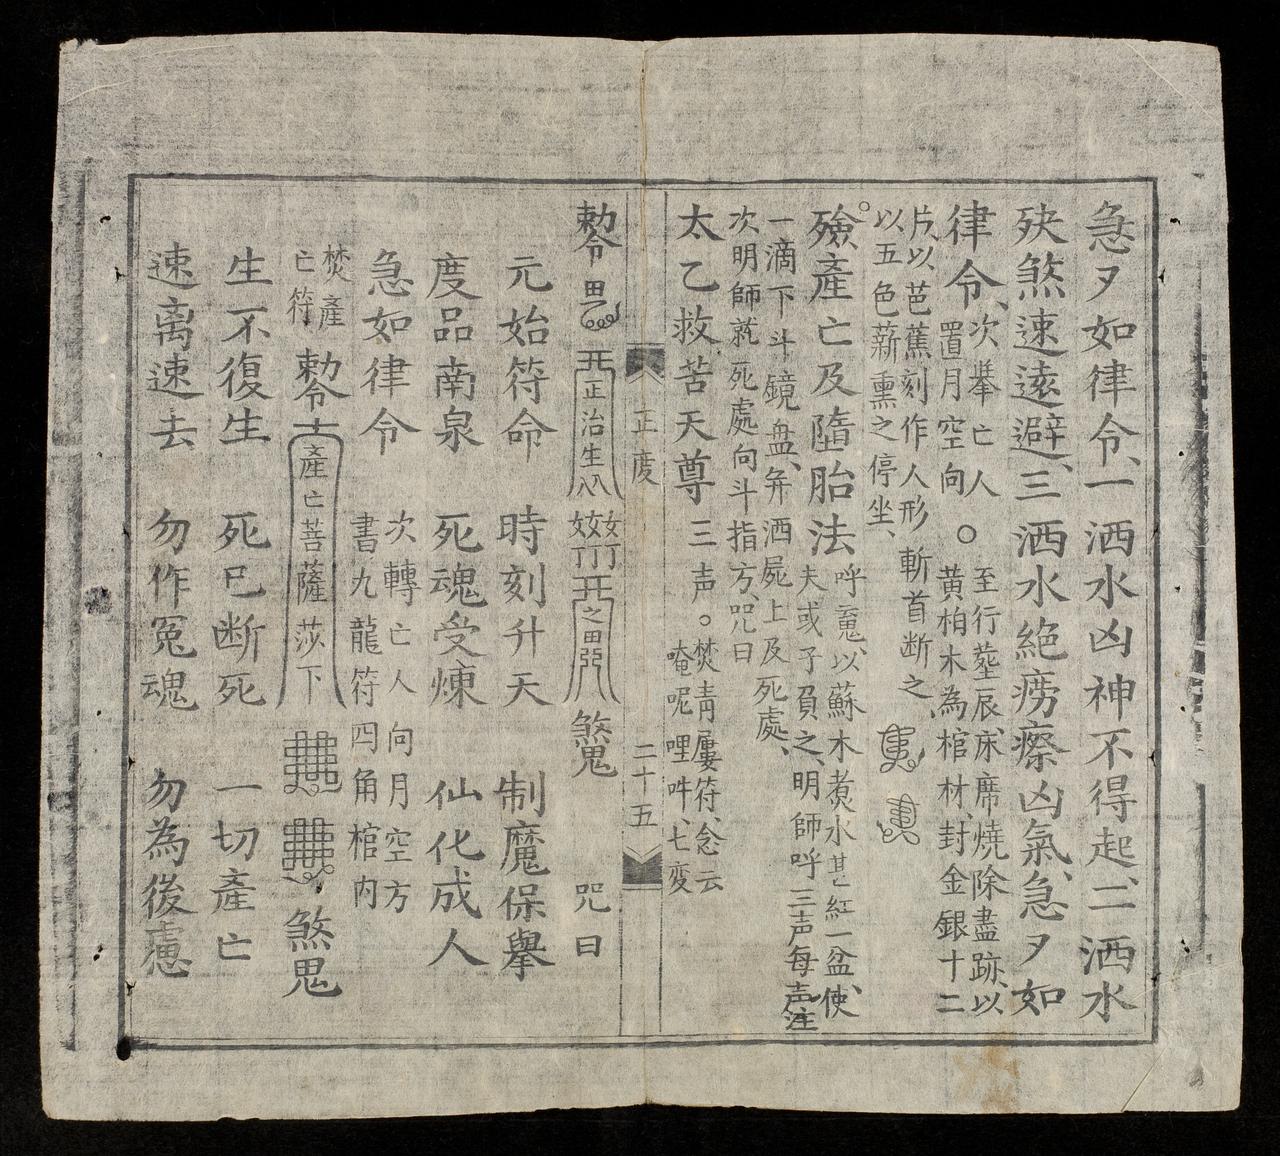 急〻如律令、一洒水凶神不得起、二洒水
殃煞速遠避、三洒水絶癆瘵凶氣、急〻如
律令、次舉亡人置月空向〇至行𦵏辰、床席燒除盡跡、以
黄柏木為棺材、封金銀十二
片、以芭蕉刻作人形斬首断之、
以五色薪熏之停坐、
殮產亡及墮胎法呼𠅤、以蘇木煮水甚紅一盆、使
夫或子負之、明師呼三声每声注
一滴下斗鏡盘、并洒屍上及死處、
次明師就死處向斗指方、咒曰
太乙救苦天尊三声。焚青屢符、念云
唵呢哩吽、七变
正度
二十五
勅令
正治生
煞鬼
咒曰
元始符命 時刻升天 制魔保舉
度品南泉 死魂受煉 仙化成人
急如律令 次轉亡人向月空方
書九龍符四角棺内
焚產亡符 勅令 產亡菩薩莎下 煞鬼
生不復生 死已断死 一切產亡
速离速去 勿作冤魂 勿為後慮